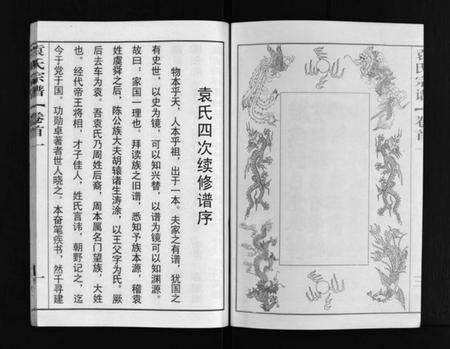 袁氏四次续修谱序
物本乎天，人本乎祖，出于一本。夫家之有谱，犹国之
有史世，以史为镜，可以知兴替，以谱为镜可以如渊源。
故曰：家国一理也，拜读族之旧谱，悉知予族本源，稽袁
姓虞舜之后，陈公族大夫胡辕诸生涛涂，以王父字为氏，厥
后去车为袁。吾袁氏乃周姓后裔，周本属名门望族，大姓
也。经代帝王将相，才子佳人，姓氏言讳，朝野记之，迄
今于党于国，功勋卓著者世人晓之。本奋笔疾书，然千寻建
袁氏宗谱
卷首
一
袁氏宗谱
卷首